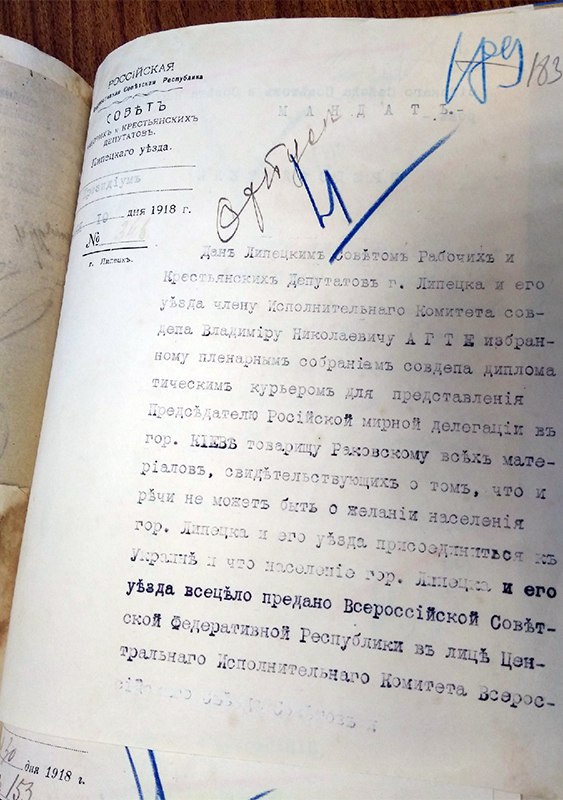 183
РОССІЙСКАЯ
Совѣтская Республика
СОВѢТЪ
и КРЕСТЬЯНСКИХЪ
ДЕПУТАТОВЪ.
Липецкаго уѣзда.
Президіумъ
10 дня 1918 г.
№
г. Липецкъ.
МАНДАТЪ.-
Отпуск
Данъ Липецкимъ Совѣтомъ Рабочихъ и
Крестьянскихъ Депутатовъ г. Липецка и его
уѣзда члену Исполнительнаго Комитета сов-
депа Владиміру Николаевичу АГТЕ избран-
ному пленарнымъ собраніамъ совдепа диплома
тическимъ курьеромъ для представленія
Предсѣдателю Російской мирной делегаціи въ
гор. КІЕВѢ товарищу Раковскому всѣхъ мате-
ріаловъ, свидѣтельствующихъ о томъ, что и
рѣчи не можетъ быть о желаніи населенія
гор. Липецка и его уѣзда присоединиться къ
Украинѣ и что населеніе гор. Липецка и его
уѣзда всецѣло предано Всероссійской Совѣт-
ской Федеративной Республики въ лицѣ Цен-
тральнаго Исполнительнаго Комитета Всерос-
30 дня 1918 г.
153